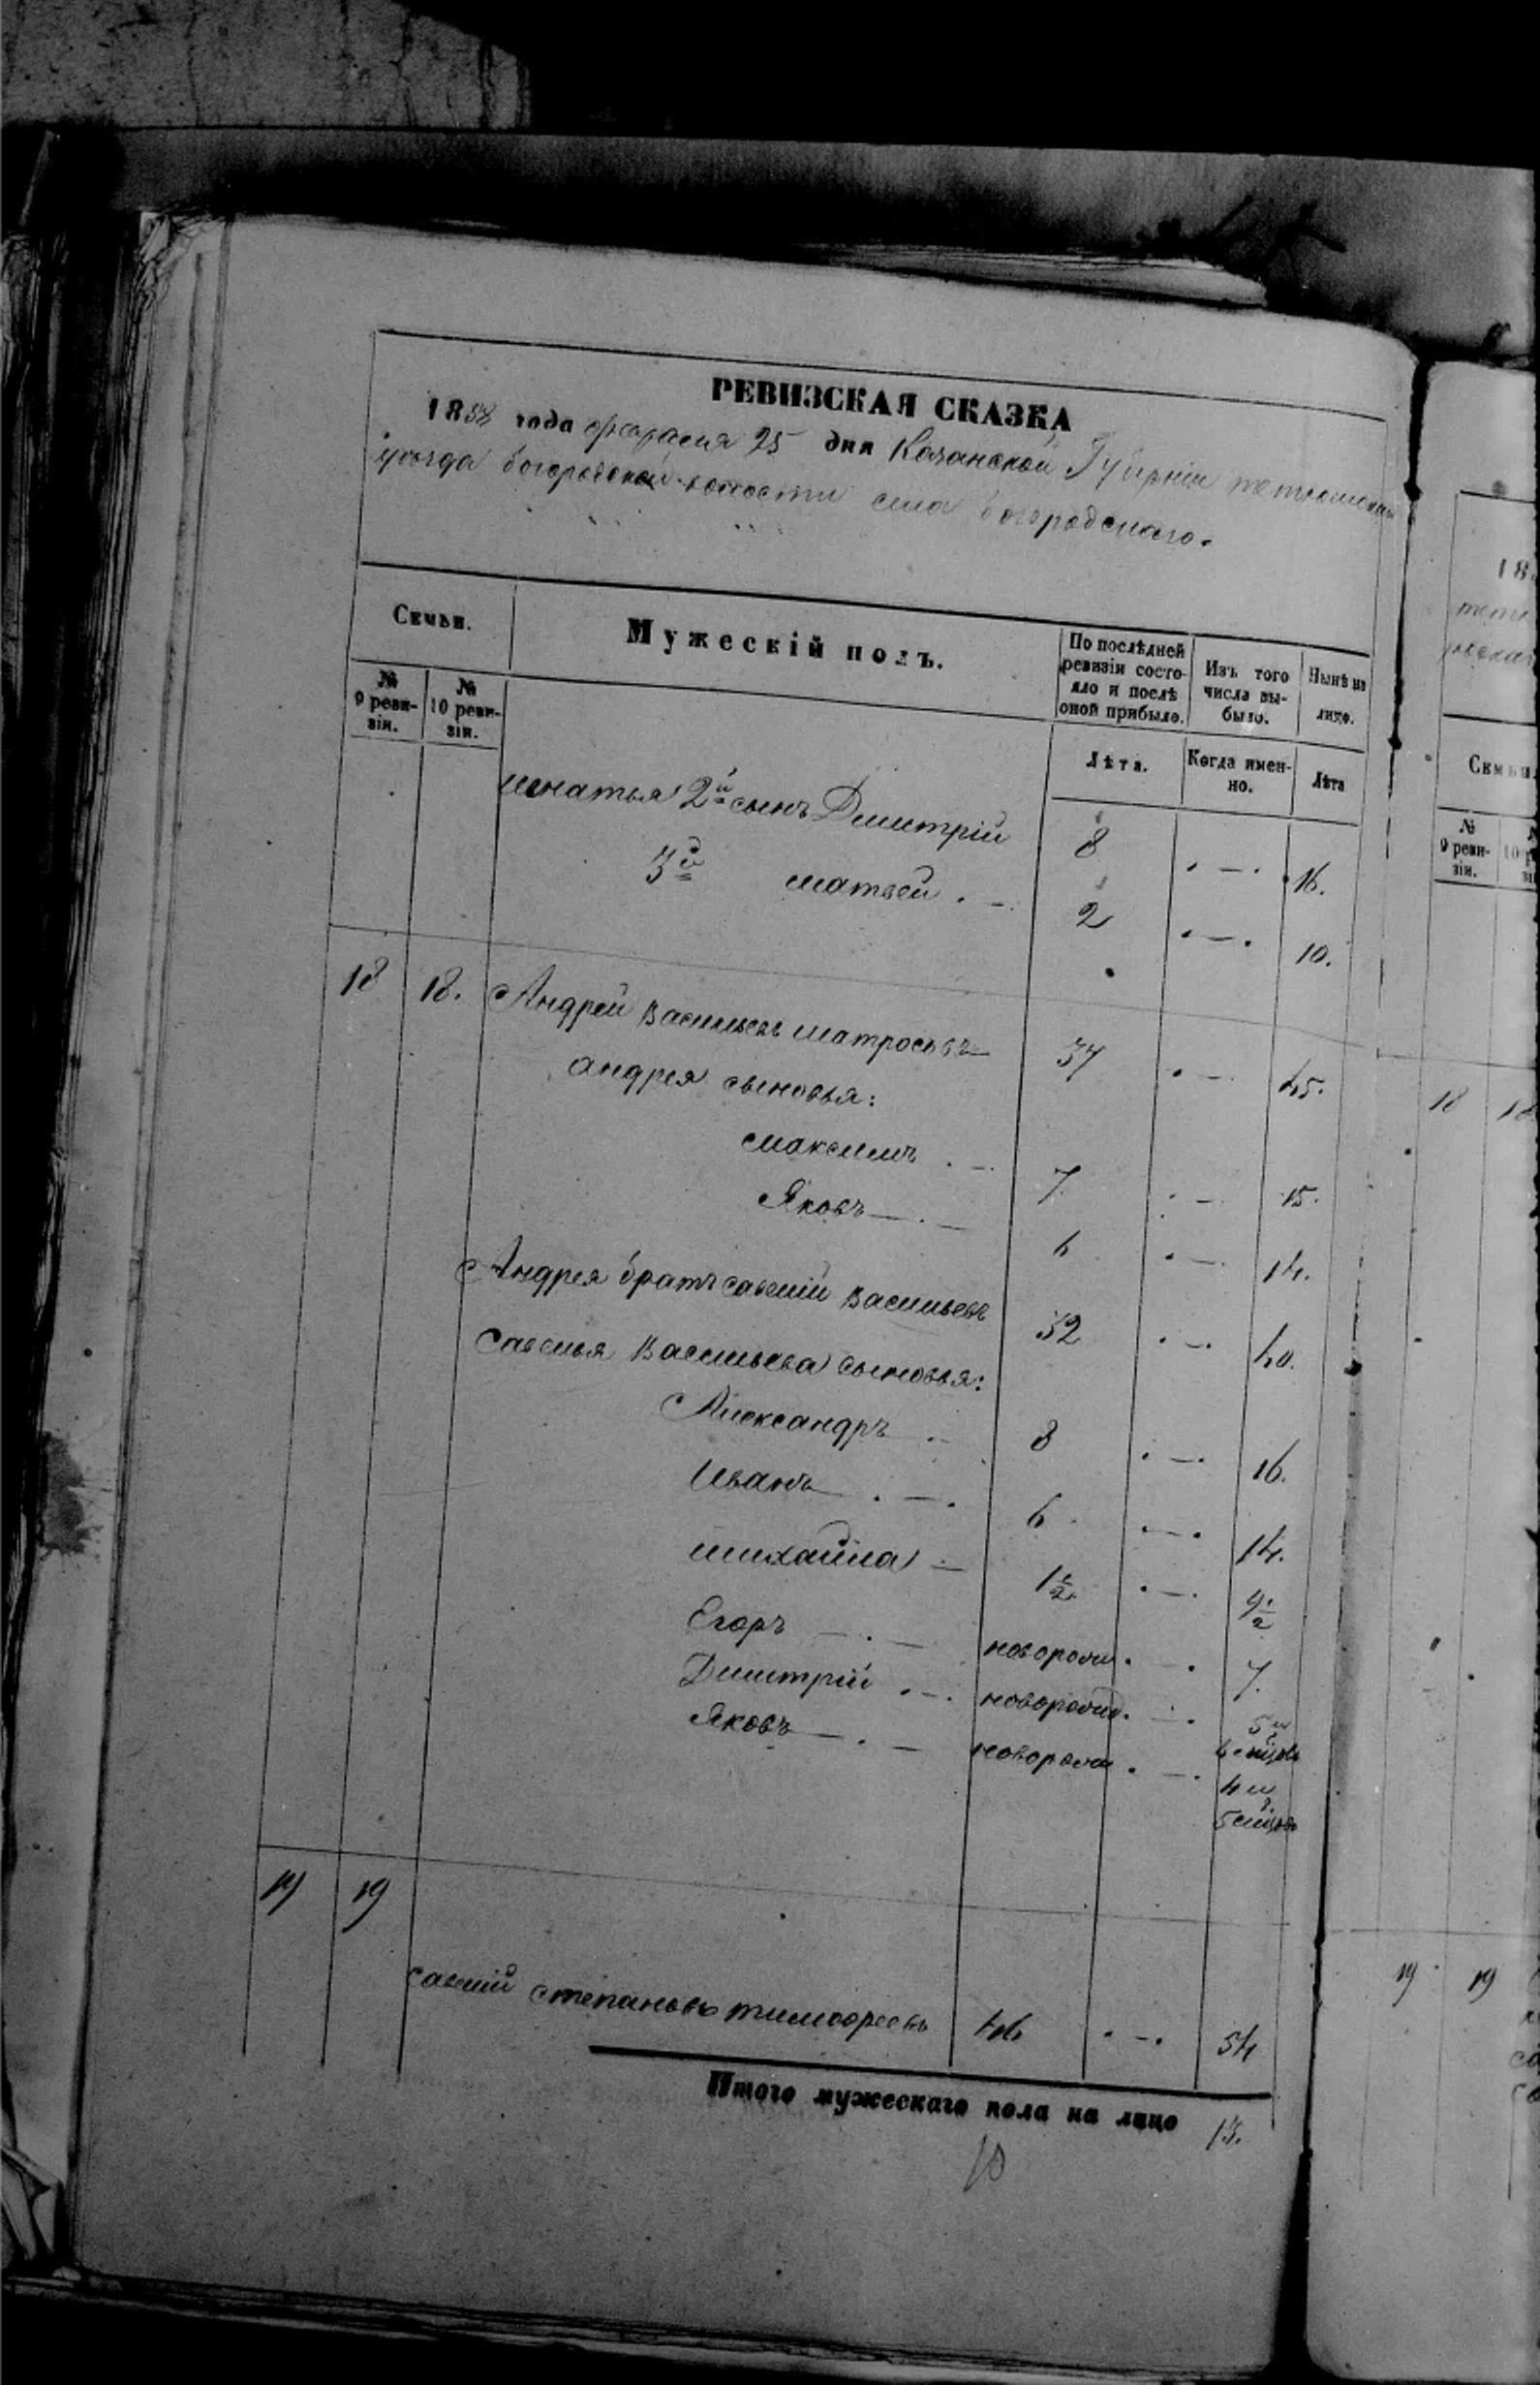 РЕВИЗСКАЯ СКАЗКА
1858 года февраля 25 дня Казанской Губерніи тетюшскаго
уѣзда богородской волости села богородскаго.
Семьи.
Мужескій полъ.
По послѣдней ревизіи состояло и послѣ оной прибыло.
Изъ того числа выбыло.
Нынѣ на лицо.
№ 9 ревизіи.
№ 10 ревизіи.
Лѣта.
Когда именно.
Лѣта
игнатья 2й сынъ Дмитрій 8 . — . 16.
3й матвей . — 2 . — . 10.
18 18. Андрей Васильевъ матросовъ — 37 . — 45.
андрея сыновья:
максимъ . — 7 . — 15.
Яковъ — . — 6 . — . 14.
Андрея братъ савелій Васильевъ 32 . — . 40.
савелья Васильева сыновья:
Александръ . — 8 . — . 16.
Иванъ — . — . 6 . — . 14.
михайла — 1 1/2 . — . 9 1/2
Егоръ — . — новорожд. — . 7.
Дмитрій . — . новорожд. — . 5 и
6 мцовъ
Яковъ — . — новорожд. — . 4 и
5 мцовъ
19 19
савелій степановъ тимофеевъ 46 . — . 54
Итого мужескаго пола на лицо 13.
18
18
тетю
Семьи.
№ 9 ревизіи.
18 18
19 19